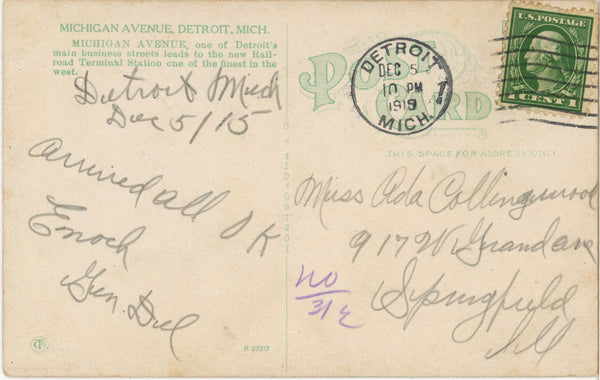 MICHIGAN AVENUE, DETROIT, MICH.
MICHIGAN AVENUE, one of Detroit's
main business streets leads to the new Rail-
road Terminal Station one of the finest in the
west.
Detroit Mich
Dec 5/15
Arrived all OK
Enoch
Gen. Del
R-25317
POST CARD
THIS SPACE FOR ADDRESS ONLY.
DETROIT
DEC 5
10 PM
MICH.
1
U.S. POSTAGE
1 CENT 1
Miss Ada Collingwood
917 W Grand ave
Springfield
Ill
NO
31 E